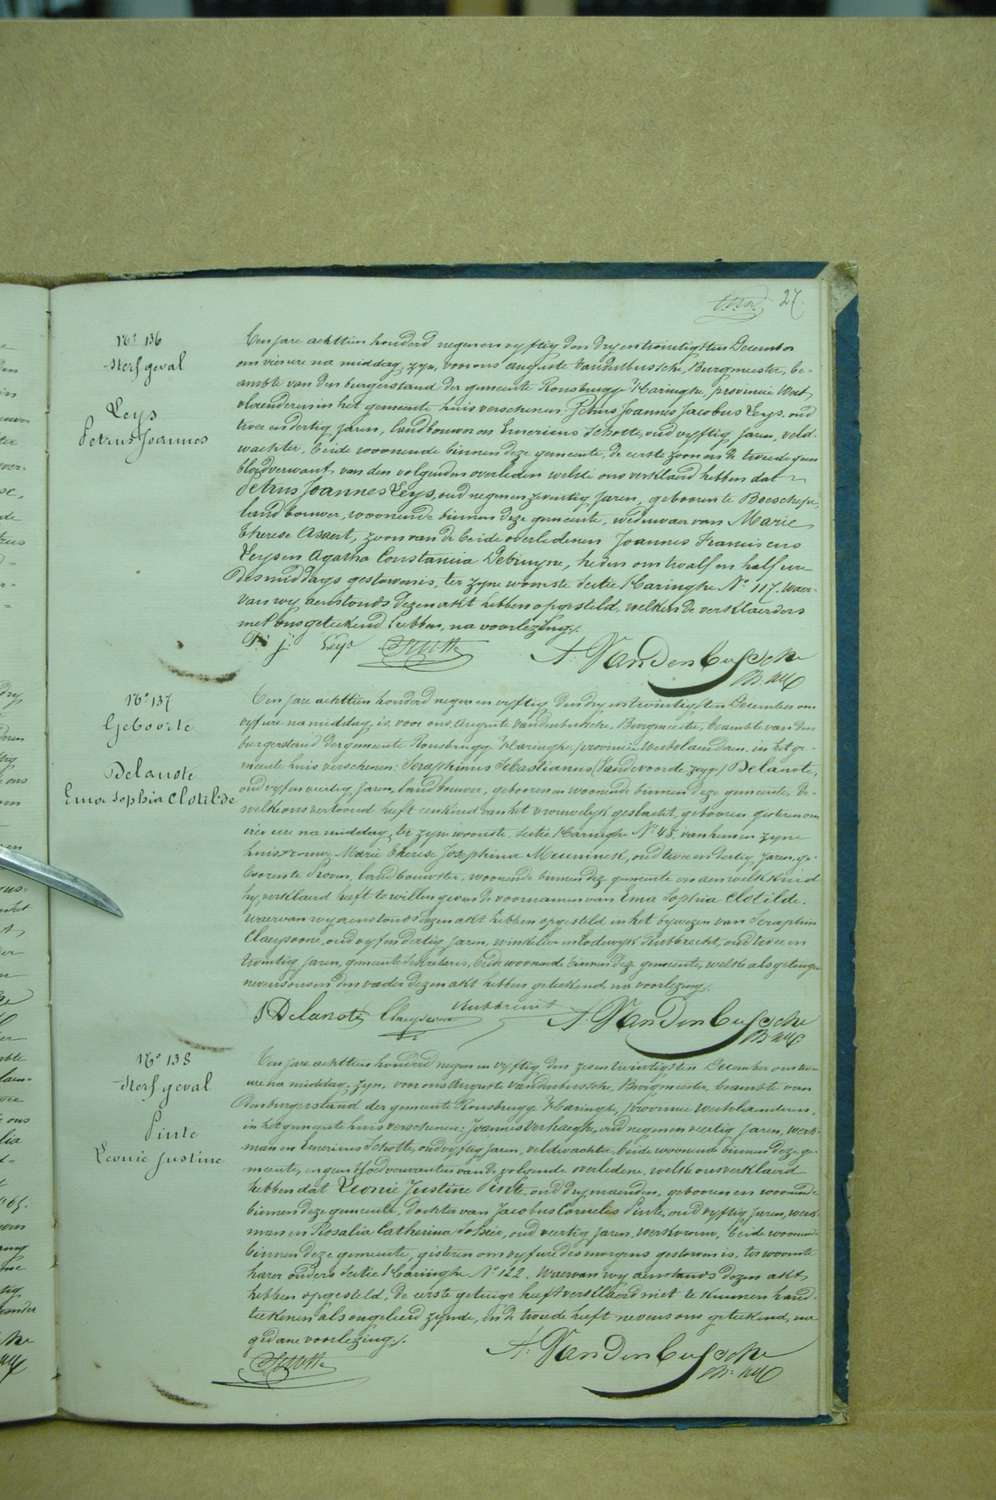 27.
N° 136
Sterfgeval
Leys
Petrus Joannes
Een jare achttien honderd negen en vyftig den dry en twintigsten December
om vier ure na middag, zyn, voor ons auguste Vandenbussche, Burgmeester, be-
ambte van den burgerstand der gemeente Rousbrugge Haringhe, provincie West
vlaenderen in het gemeente huis verschenen Petrus Joannes Jacobus Leys, oud
twee en dertig jaren, landbouwer en Emerinus Schotte, oud vyftig jaren, veld-
wachter, beide woonende binnen deze gemeente, de eerste zoon en de tweede geen
bloedverwant van den volgenden overleden welke ons verklaerd hebben dat
Petrus Joannes Leys, oud negen en zeventig jaren, gebooren te Boeschepe,
landbouwer, woonende binnen deze gemeente, weduwaer van Marie
Therese Assaert, zoon van de beide overledenen Joannes Franciscus
Leys en Agatha Constancia Debruyne, heden om twaelf en half ure
des middags gestorven is, ter zyne woonste sectie Haringhe N° 117. Waer-
van wy aenstonds dezen akt hebben opgesteld, welken de verklaerders
met ons geteekend hebben, na voorlezing.
P. J. Leys Schotte A. Vandenbussche
N° 137
Geboorte
Delanote
Ema Sophia Clotilde
Een jare achttien honderd negen en vyftig den dry en twintigsten December om
vyf ure na middag, is voor ons, Auguste Vandenbussche, Burgmeester, beambte van den
burgerstand der gemeente Rousbrugge Haringhe, provincie Westvlaenderen, in het ge-
meente huis verschenen: Seraphinus Sebastianus (Vandevoorde zegge) Delanote,
oud vyf en veertig jaren, landbouwer, gebooren en woonende binnen deze gemeente, de-
welke ons vertoond heeft een kind van het vrouwelyk geslacht, gebooren gisteren om
vier ure na middag, ter zyne woonste, sectie Haringhe N° 48 van hem en zyne
huisvrouw Marie Therese Josephina Meuninck, oud twee en dertig jaren, ge-
booren te Proven, landbouwster, woonende binnen deze gemeente en aen welk kind
hy verklaerd heeft te willen geven de voornamen van Ema Sophia Clotilde.
Waervan wy aenstonds dezen akt hebben opgesteld in het bywezen van Seraphin
Claeysoone, oud vyf en dertig jaren, winkelier en Lodewyk Rubbrecht, oud twee en
twintig jaren, gemeente sekretaris, beide woonende binnen deze gemeente, welke als getuigen
nevens ons en den vader dezen akt hebben geteekend na voorlezing.
S Delanote Claeysoone Rubbrecht A. Vandenbussche
N° 138
Sterfgeval
Pinte
Leonie Justine
Een jare achttien honderd negen en vyftig den zes en twintigsten December om twee
ure na middag, zyn, voor ons Auguste Vandenbussche, Burgmeester, beambte van
den burgerstand der gemeente Rousbrugge Haringhe, provincie Westvlaenderen,
in het gemeente huis verschenen: Joannes Verhaeghe, oud negen en veertig jaren, werk-
man en Emerinus Schotte, oud vyftig jaren, veldwachter, beide woonende binnen deze ge-
meente, en geen bloedverwanten van de volgende overledene, welke ons verklaerd
hebben dat Leonie Justine Pinte, oud dry maenden, gebooren en woonende
binnen deze gemeente, dochter van Jacobus Cornelis Pinte, oud vyftig jaren, werk-
man en Rosalia Catherina, oud veertig jaren, werkvrouw, beide woonende
binnen deze gemeente, gisteren om vyf ure des morgens gestorven is, ter woonste
harer ouders sectie Haringhe N° 122. Waervan wy aenstonds dezen akt
hebben opgesteld, de eerste getuige heeft verklaerd niet te kunnen hand-
teekenen als ongeleerd zynde, en de tweede heeft nevens ons geteekend, na
gedane voorlezing.
Schotte A. Vandenbussche